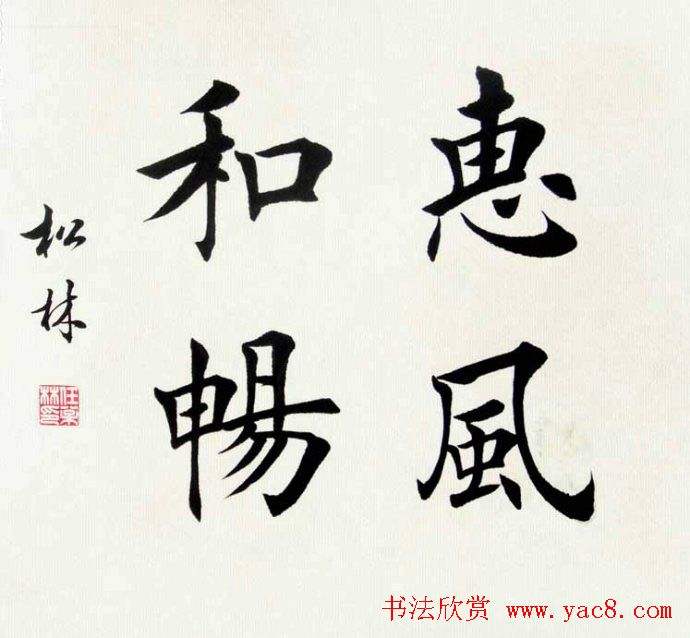 惠風
和暢
松林
任松林印
书法欣赏 www.yac8.com